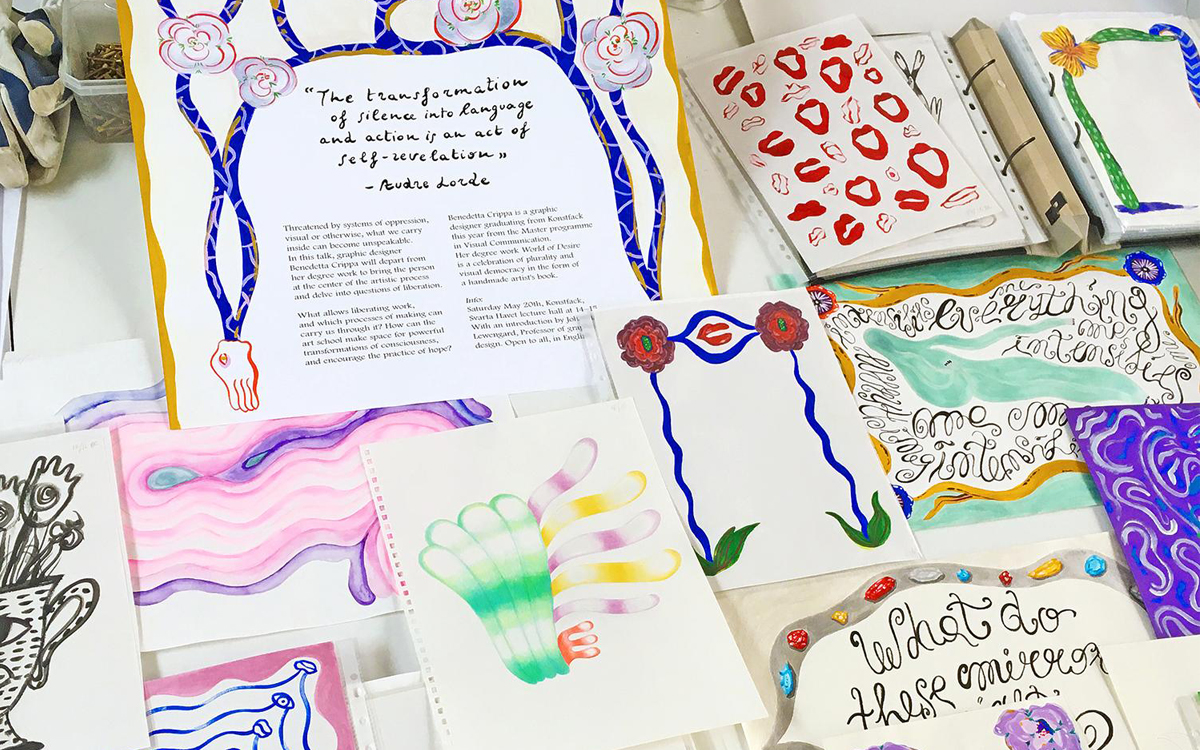 “The transformation
of silence into language
and action is an act of
self-revelation”
- Audre Lorde
Threatened by systems of oppression,
visual or otherwise, what we carry
inside can become unspeakable.
In this talk, graphic designer
Benedetta Crippa will depart from
her degree work to bring the person
at the center of the artistic process
and delve into questions of liberation.
What allows liberating work,
and which processes of making can
carry us through it? How can the
art school make space for powerful
transformations of consciousness,
and encourage the practice of hope?
Benedetta Crippa is a graphic
designer graduating from Konstfack
this year from the Master programme
in Visual Communication.
Her degree work World of Desire
is a celebration of plurality and
visual democracy in the form of
a handmade artist's book.
Info:
Saturday May 20th, Konstfack,
Svarta Havet lecture hall at 14
With an introduction by
Lewengard, Professor of
design. Open to all, in
everything
me
intensify
me
What do
these mirror